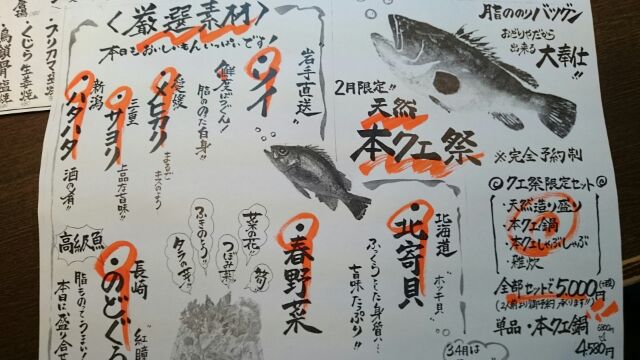 <厳選素材>
本日もおいしいもんいっぱいです
岩手直送
・ソイ
鮮度ばつぐん!
脂ののった白身!!
愛媛
・メヒカリ
三重
・サヨリ
上品な旨味!!
新潟
・ハタハタ
酒の肴!!
高級魚
長崎
・のどぐろ
"紅瞳
脂ものってうまい!
2月限定!!
天然
本クエ祭
脂ののりバツグン
おどりやだから
出来る
大奉仕!!
※完全予約制
◎クエ祭限定セット◎
・天然造り盛り
・本クエ鍋
・本クエしゃぶしゃぶ
・雑炊
全部セットで5,000円
単品・本クエ鍋
4,580円
北海道
"ホッキ貝"
・北寄貝
ふっくらとした身質に
旨味たっぷり!!
・春野菜
菜花!!
つぼみ菜
ふきのとう!
タラの芽!!
筍
3,4月は
ブリカマ塩焼
くじら生姜焼